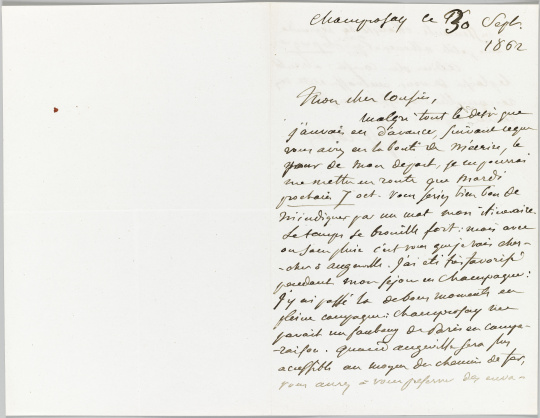 Champrosay ce 30 Sept.
1862
Mon cher Cousin,
Malgré tout le désir que
j'aurais eu d'avance, suivant ce que
vous aviez eu la bonté de m'écrire, le
jour de mon départ, je ne pourrai
me mettre en route que Mardi
prochain 7 oct. Vous seriez bien bon de
m'indiquer par un mot mon itinéraire.
Le temps se brouille fort: mais avec
ou sans pluie c'est vous que je vais cher-
-cher à augerville. J'ai été très favorisé
pendant mon séjour en Champagne:
J'y ai passé là de bons moments en
pleine campagne: Champrosay me
parait un faubourg de Paris en compa-
raison. Quand augerville sera plus
accessible au moyen du chemin de fer,
vous aurez à vous préserver des enva-